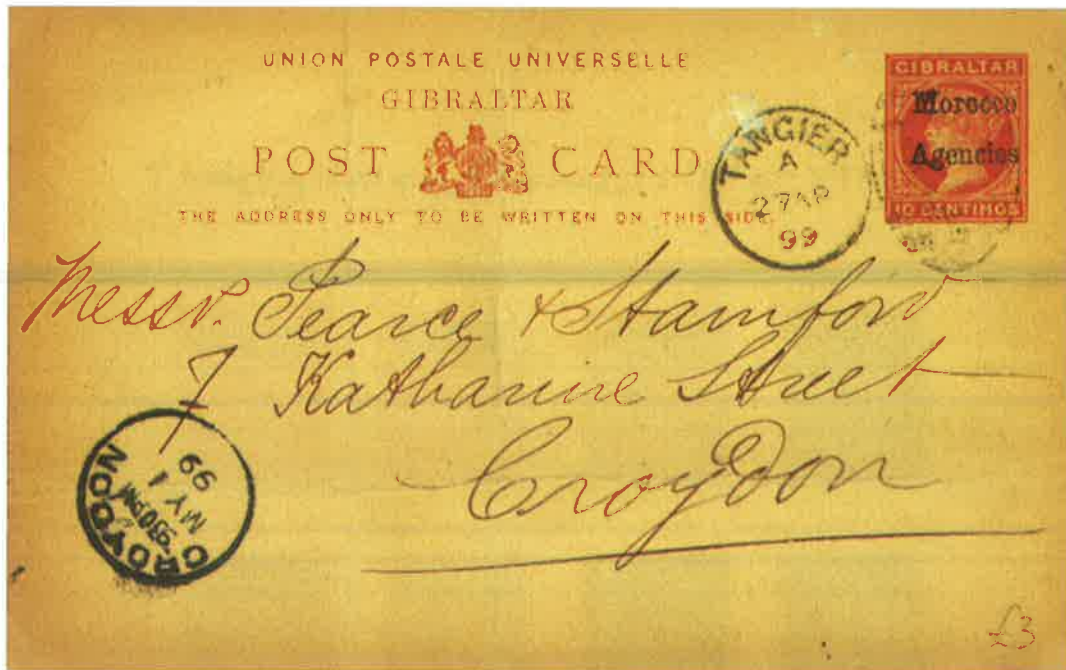 UNION POSTALE UNIVERSELLE
GIBRALTAR
POST CARD
THE ADDRESS ONLY TO BE WRITTEN ON THIS SIDE.
GIBRALTAR
Morocco
Agencies
10 CENTIMOS
TANGIER
A
27 AP
99
Messr. Pearce & Stamford
7 Katharine Street
Croydon
CROYDON
930PM
MY 1
99
£3